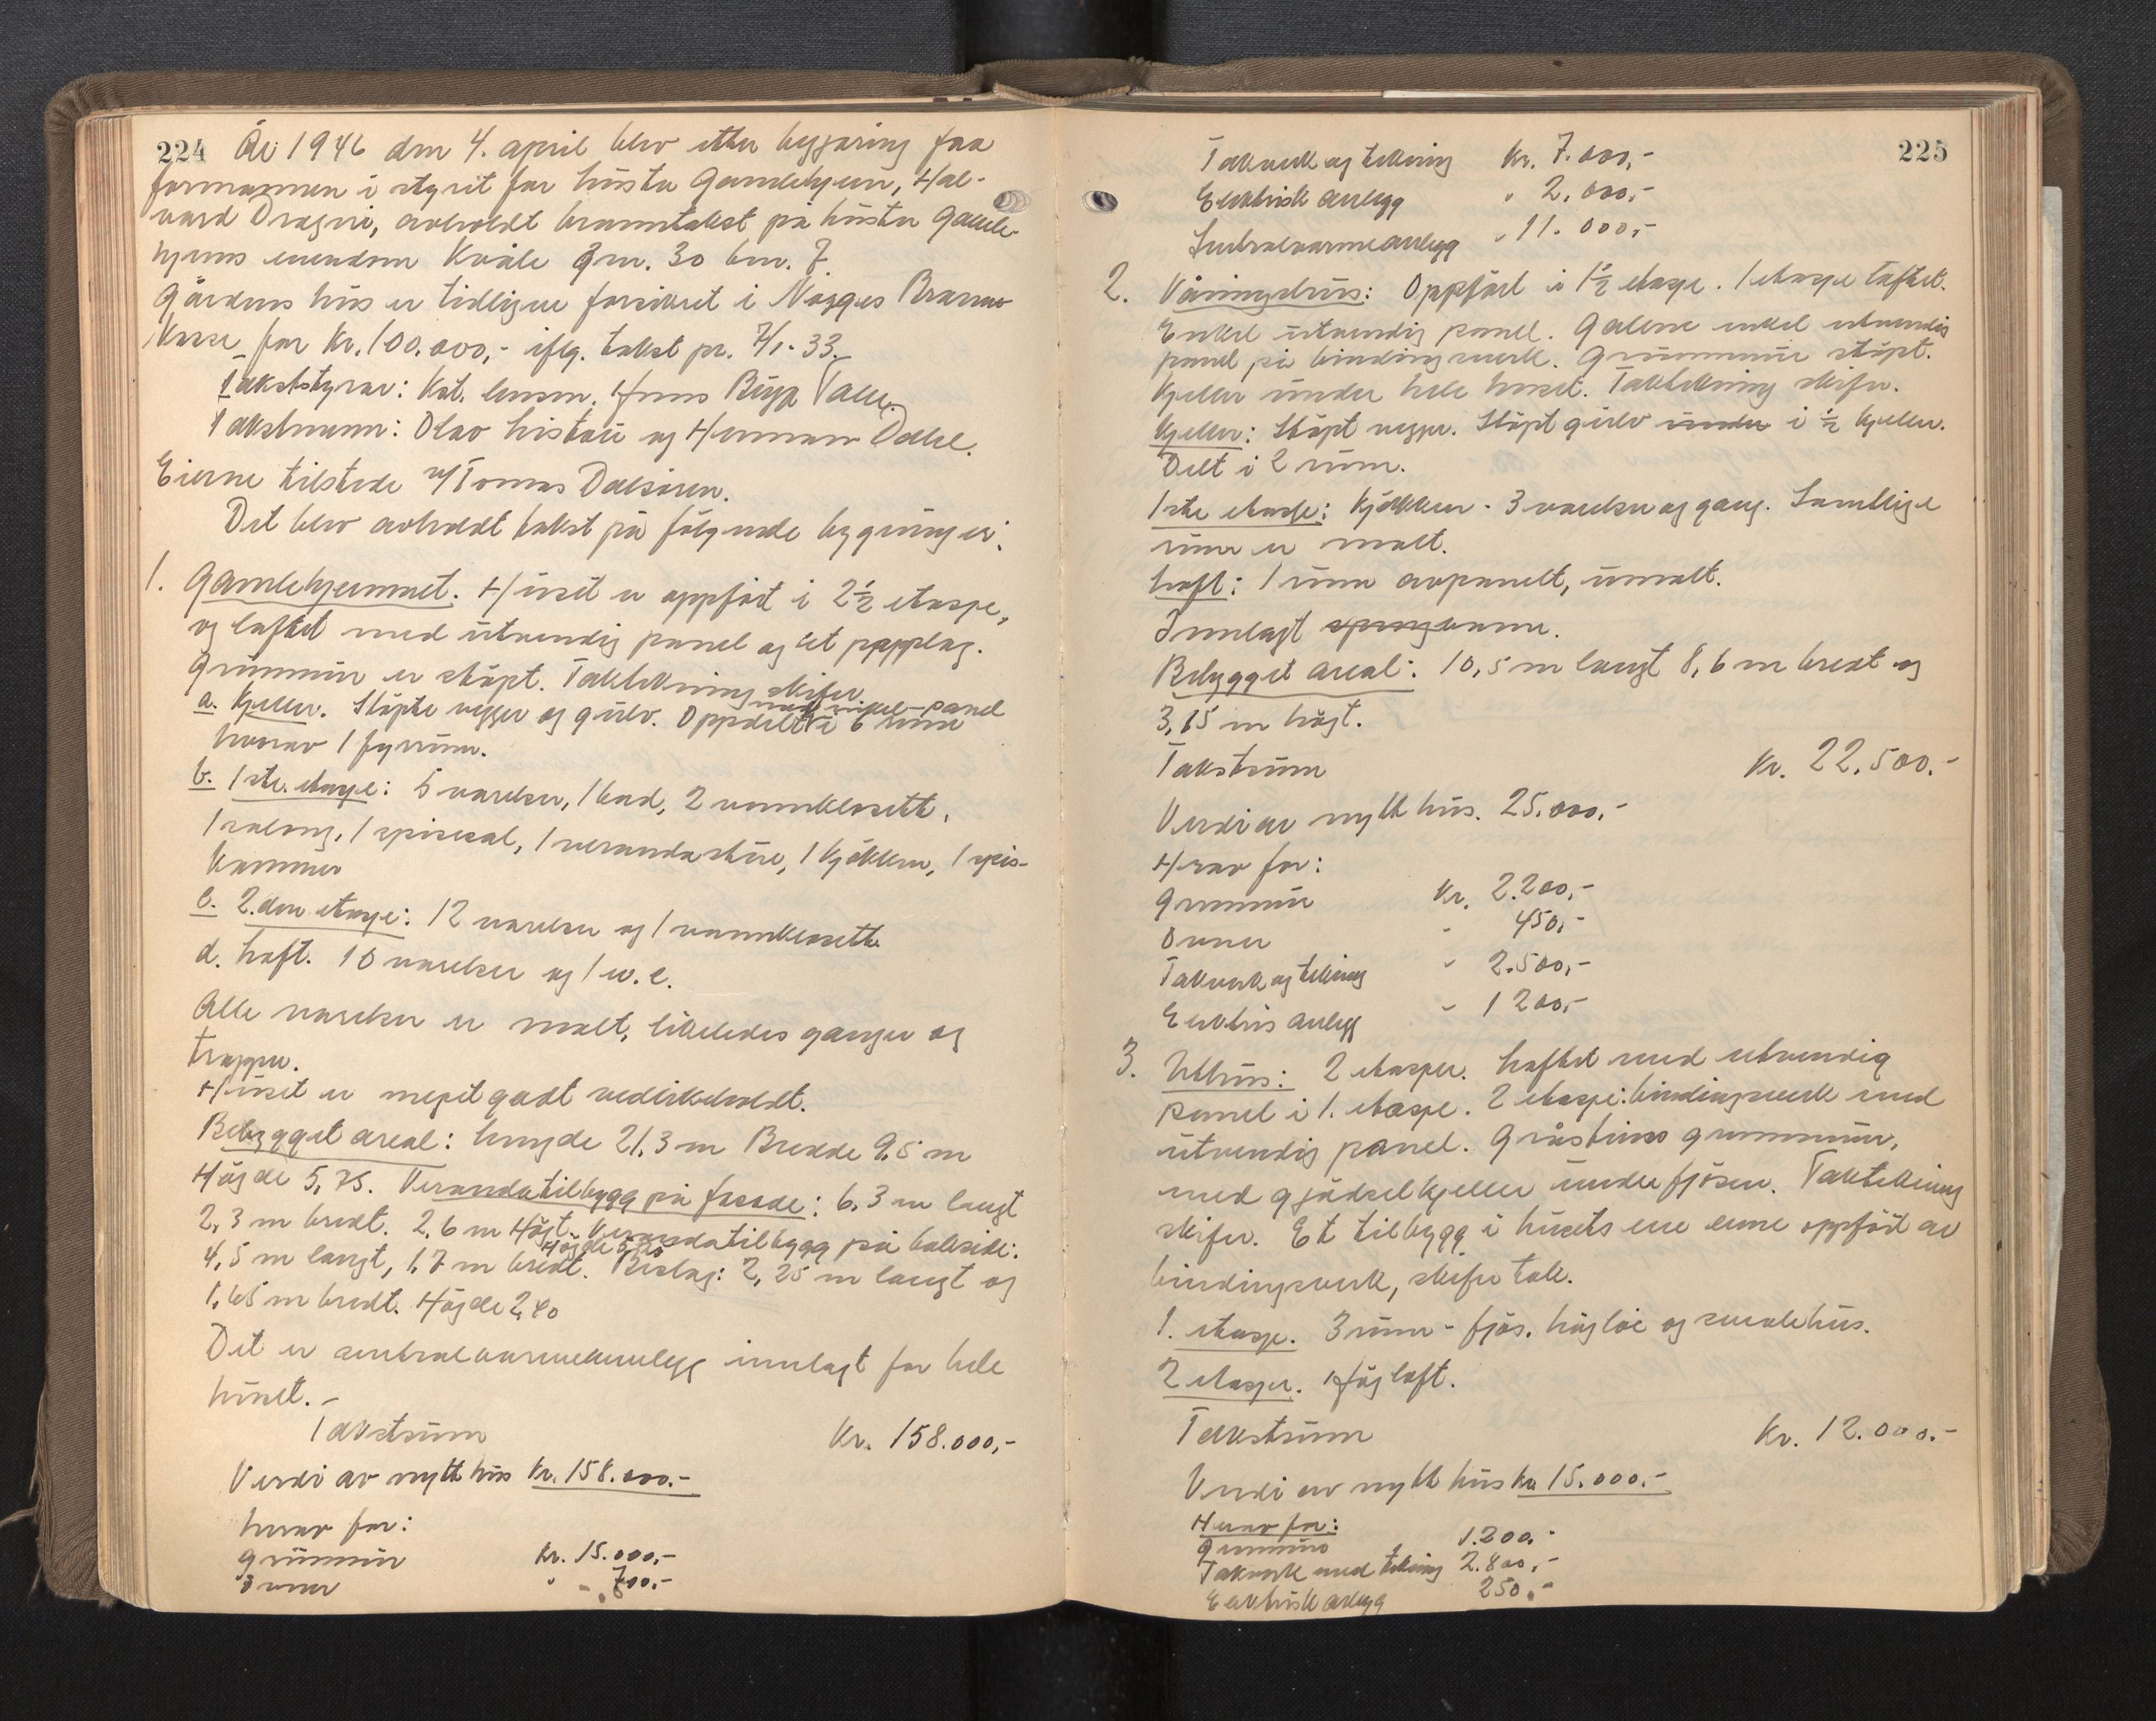 224 År 1946 den 4. april blev etter begjæring fra
formannen i styret for Lustra Gamlehjem, Hal-
vard Dragsvi, avholdt branntakst på Lustra Gamle-
hjems eiendom Kvåle gnr. 30 bnr. 7.
Gårdens hus er tidligere forsikret i Norges Brann-
kasse for Kr. 100.000,- iflg. takst pr. 7/1-33.
Takstmenn: Olav Listøii og Herman Dahle.
Eierne tilstede v/Tomas Dalsøren.
Det blev avholdt takst på følgende bygninger:
1. Gamlehjemmet. Huset er oppført i 2 1/2 etasje,
og laftet med utvendig panel og et papplag.
Grunnmur er støpt. Taktekning skifer
med enkel panel
a. Kjeller. Støpte vegger og gulv. Oppdelt i 6 rum
hvorav 1 fyrrum.
b. 1ste. etasje: 5 værelser, 1 bad, 2 vannklosett.
1 salong, 1 spisesal, 1 verandastue, 1 kjøkken, 1 spis-
kammer
c. 2.den etasje: 12 værelser og 1 vannklosett
d. Loft. 10 værelser og 1 w.c.
Alle værelser er malt, likeledes ganger og
trapper.
Huset er meget godt vedlikeholdt.
Bebygget areal: Lengde 21,3 m Bredde 9,5 m
Høgde 5,75. Verandatilbygg på fasade: 6,3 m langt
2,3 m bredt. 2,6 m Høgt. Verandatilbygg på bakside:
4,5 m langt, 1,7 m bredt. Bislag: 2,25 m langt og
1,65 m bredt. Høgde 2,40
Det er sentralvarmeanlegg innlagt for hele
huset.-
Takstsum Kr. 158.000,-
Verdi av nytt hus Kr. 158.000.-
herav for:
Grunnmur Kr. 15.000,-
Ovner " 700,-
225
Takverk og tekning Kr. 7.000,-
Elektrisk anlegg " 2.000,-
Sentralvarmeanlegg " 11.000,-
2. Våningshus: Oppført i 1 1/2 etasje. 1 etasje laftet.
Enkel utvendig panel. Gavlene enkel utvendig
panel på bindingsverk. Grunnmur støpt.
Kjeller under hele huset. Taktekning skifer.
Kjeller: Støpt vegger. Støpt gulv under i 1/2 kjeller.
Delt i 2 rum.
1ste etasje: Kjøkken - 3 værelser og gang. Samtlige
rum er malt.
Loft: 1 rum avpanelt, umalt.
Innlagt springvann.
Bebygget areal: 10,5 m langt 8,6 m bredt og
3,65 m høgt.
Takstsum Kr. 22.500.-
Verdi av nytt hus. 25.000,-
Herav for:
Grunnmur Kr. 2.200,-
Ovner " 450,-
Takverk og tekning " 2.500,-
Elektris anlegg " 1200,-
3. Uthus: 2 etasjer. Laftet med utvendig
panel i 1. etasje. 2 etasje: bindingsverk med
utvendig panel. Gråsteins grunnmur,
med gjødselkjeller under fjøsen. Taktekning
skifer. Et tilbygg i husets ene ende oppført av
bindingsverk, skifer tak.
1. etasje. 3 rum - fjøs, højløe og smalehus.
2 etasjer. Høj loft.
Takstsum Kr. 12.000.-
Verdi av nytt hus Kr 15.000.-
Herav for:
Grunnmur 1.200.-
Takverk med tekning 2.800,-
Elektrisk anlegg 250.-